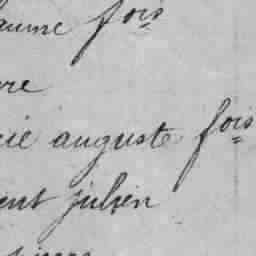 aume fois
re
cie auguste fois
ent julien